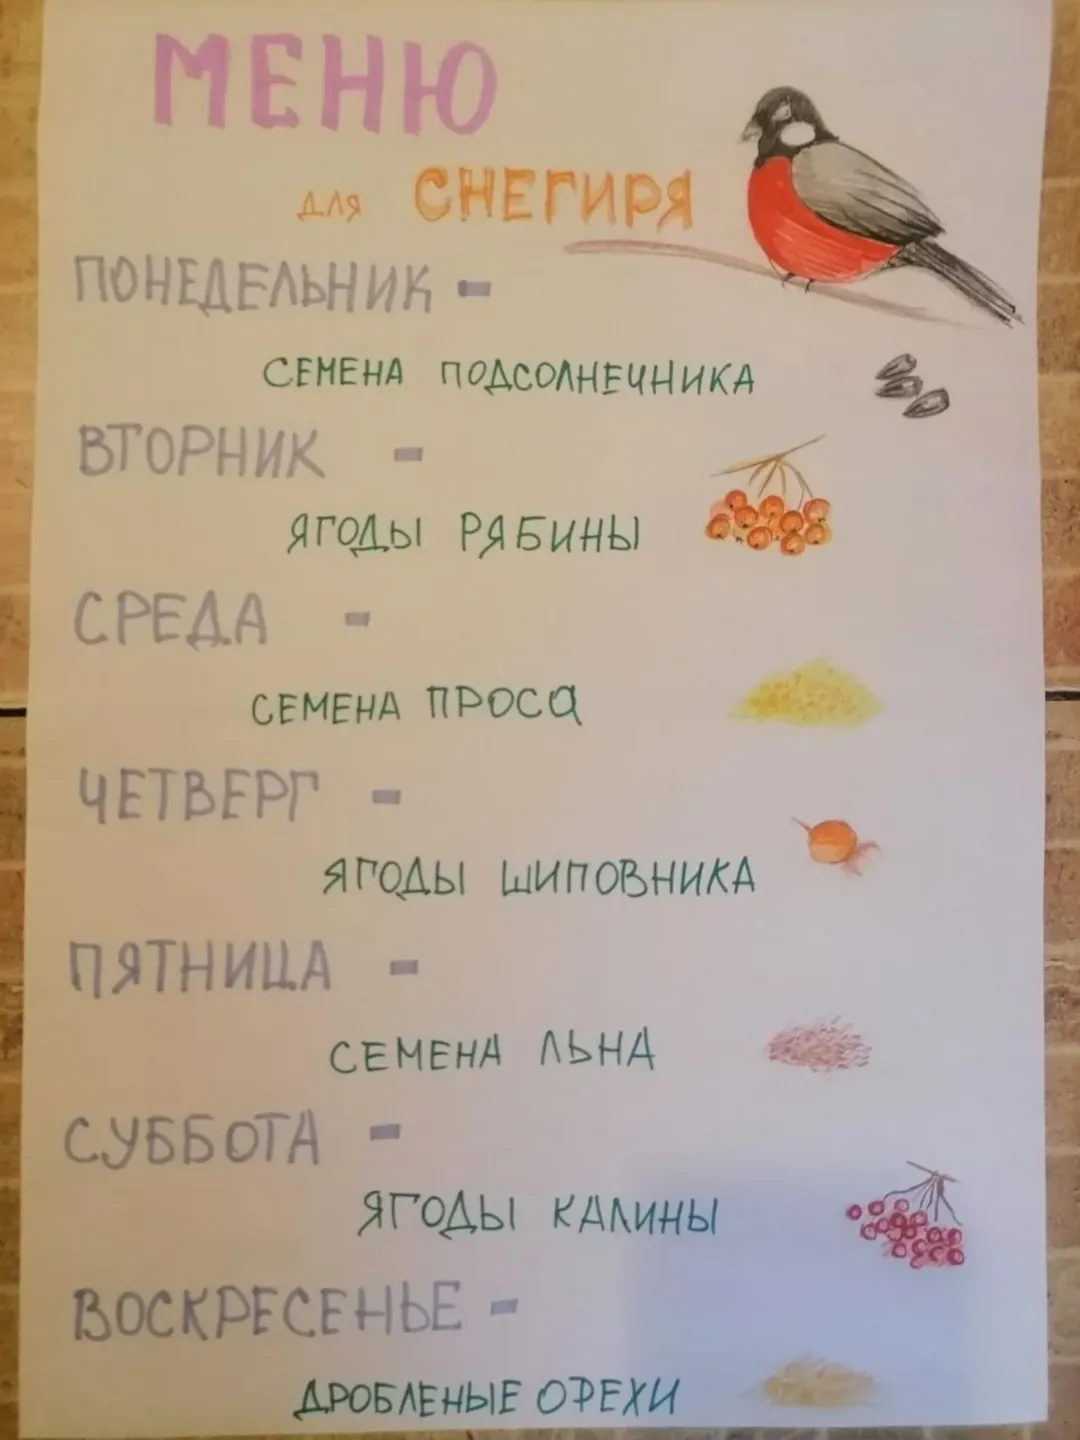 МЕНЮ
для СНЕГИРЯ
ПОНЕДЕЛЬНИК -
СЕМЕНА ПОДСОЛНЕЧНИКА
ВТОРНИК -
ЯГОДЫ РЯБИНЫ
СРЕДА -
СЕМЕНА ПРОСА
ЧЕТВЕРГ -
ЯГОДЫ ШИПОВНИКА
ПЯТНИЦА -
СЕМЕНА ЛЬНА
СУББОТА -
ЯГОДЫ КАЛИНЫ
ВОСКРЕСЕНЬЕ -
ДРОБЛЕНЫЕ ОРЕХИ